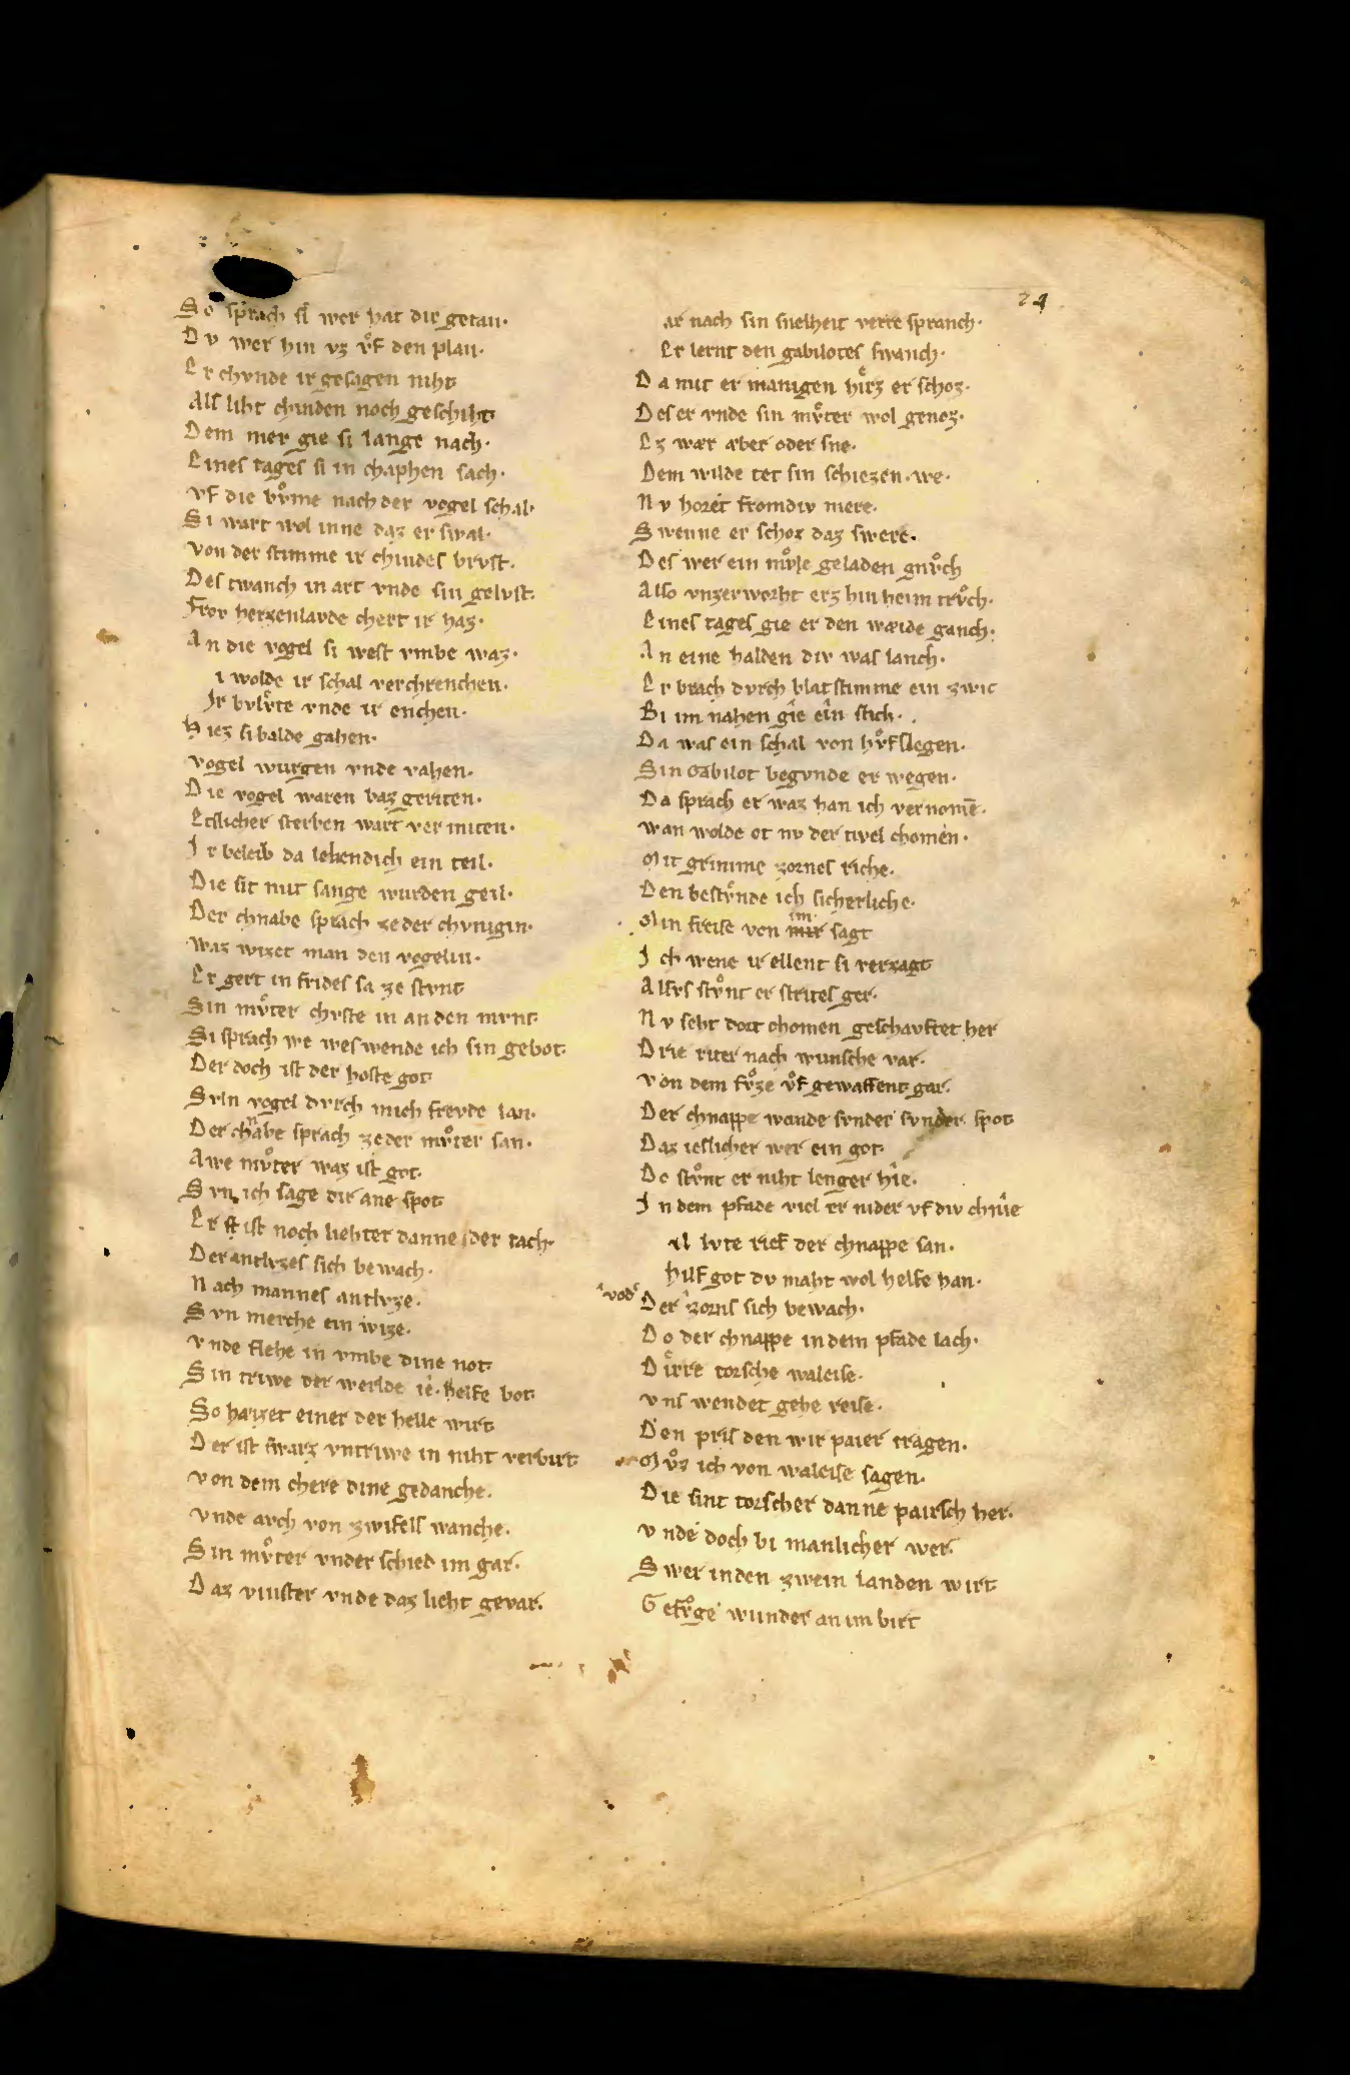 24
So sprach si wer hat dir getan·
Dv wer hin vz vͦf den plan·
Er chvnde ir gesagen niht
Als liht chinden noch geschiht
Dem mer gie si lange nach·
Eines tages si in chaphen sach·
vf die bvͦme nach der vogel schal·
Si wart wol inne daz er swal·
von der stimme ir chindes brvst·
Des twanch in art vnde sin gelvst·
Frov herzenlavde chert ir haz·
An die vogel si west vmbe waz·
i wolde ir schal verchrenchen·
Ir bvlvͤte vnde ir enchen·
Hiez si balde gahen·
vogel wurgen vnde vahen·
Die vogel waren baz geriten·
Etslicher sterben wart vermiten·
Ir beleib da lebendich ein teil·
Die sit mit sange wurden geil·
Der chnabe sprach ze der chvnigin·
Waz wizet man den vogelin·
Er gert in frides sa ze stvnt
Sin mvͦter chvste in an den mvnt·
Si sprach we wes wende ich sin gebot·
Der doch ist der hoste got
Svln vogel dvrch mich frevde lan·
Der chnabe sprach ze der mvͦter san·
Awe mvͦter waz ist got·
Svn ich sage dir ane spot
Er ist noch liehter danne der tach·
Der antlvzes sich bewach·
Nach mannes antlvze·
Svn merche ein wize·
vnde flehe in vmbe dine not
Sin triwe der werlde ie· helfe bot
So haizet einer der helle wirt
Der ist swarz vntriwe in niht verbirt
von dem chere dine gedanche·
vnde avch von zwifels wanche·
Sin mvͦter vnder schied im gar·
Daz vinster vnde daz lieht gevar·
ar nach sin snelheit verre spranch·
Er lernt den gabilotes swanch·
Da mit er manigen hirz er schoz·
Des er vnde sin mvͦter wol genoz·
Ez wær aber oder sne·
Dem wilde tet sin schiezen· we·
Nv horet fromdiv mere·
Swenne er schoz daz swere·
Des wer ein mvͦle geladen gnvͦch
Also vnzerworht erz hin heim trvͦch·
Eines tages gie er den wæide ganch·
An eine halden div was lanch·
Er brach dvrch blat stimme ein zwic
Bi im nahen gîe eîn stich·
Da was ein schal von hvͦfslegen·
Sin Gabilot begvnde er wegen·
Da sprach er waz han ich vernomē·
wan wolde ot nv der tivel chomen·
Mit grimme zornes riche·
Den bestvͤnde ich sicherliche·
Min freise von mir im· sagt
Ich wene ir ellent si verzagt
Alsvs stvͦnt er strites ger·
Nv seht dort chomen geschavftet her
Drie riter nach wunsche var·
von dem fvͦze vͦf gewaffent gar·
Der chnappe wande svnder svnder spot
Daz ieslicher wer ein got·
Do stvͦnt er niht lenger hîe·
In dem pfade viel er nider vf div chnîe
il lvte rief der chnappe san·
hilf got dv maht wol helfe han·
vod Der zorns sich bewach·
Do der chnappe in dem pfade lach·
Dirre torsche waleise·
vns wendet gehe reise·
Den pris den wir paier tragen·
Mvͦz ich von waleise sagen·
Die sint torscher danne pairsch her·
vnde doch bi manlicher wer·
Swer in den zwein landen wirt
Gefvͦge wunder an im birt